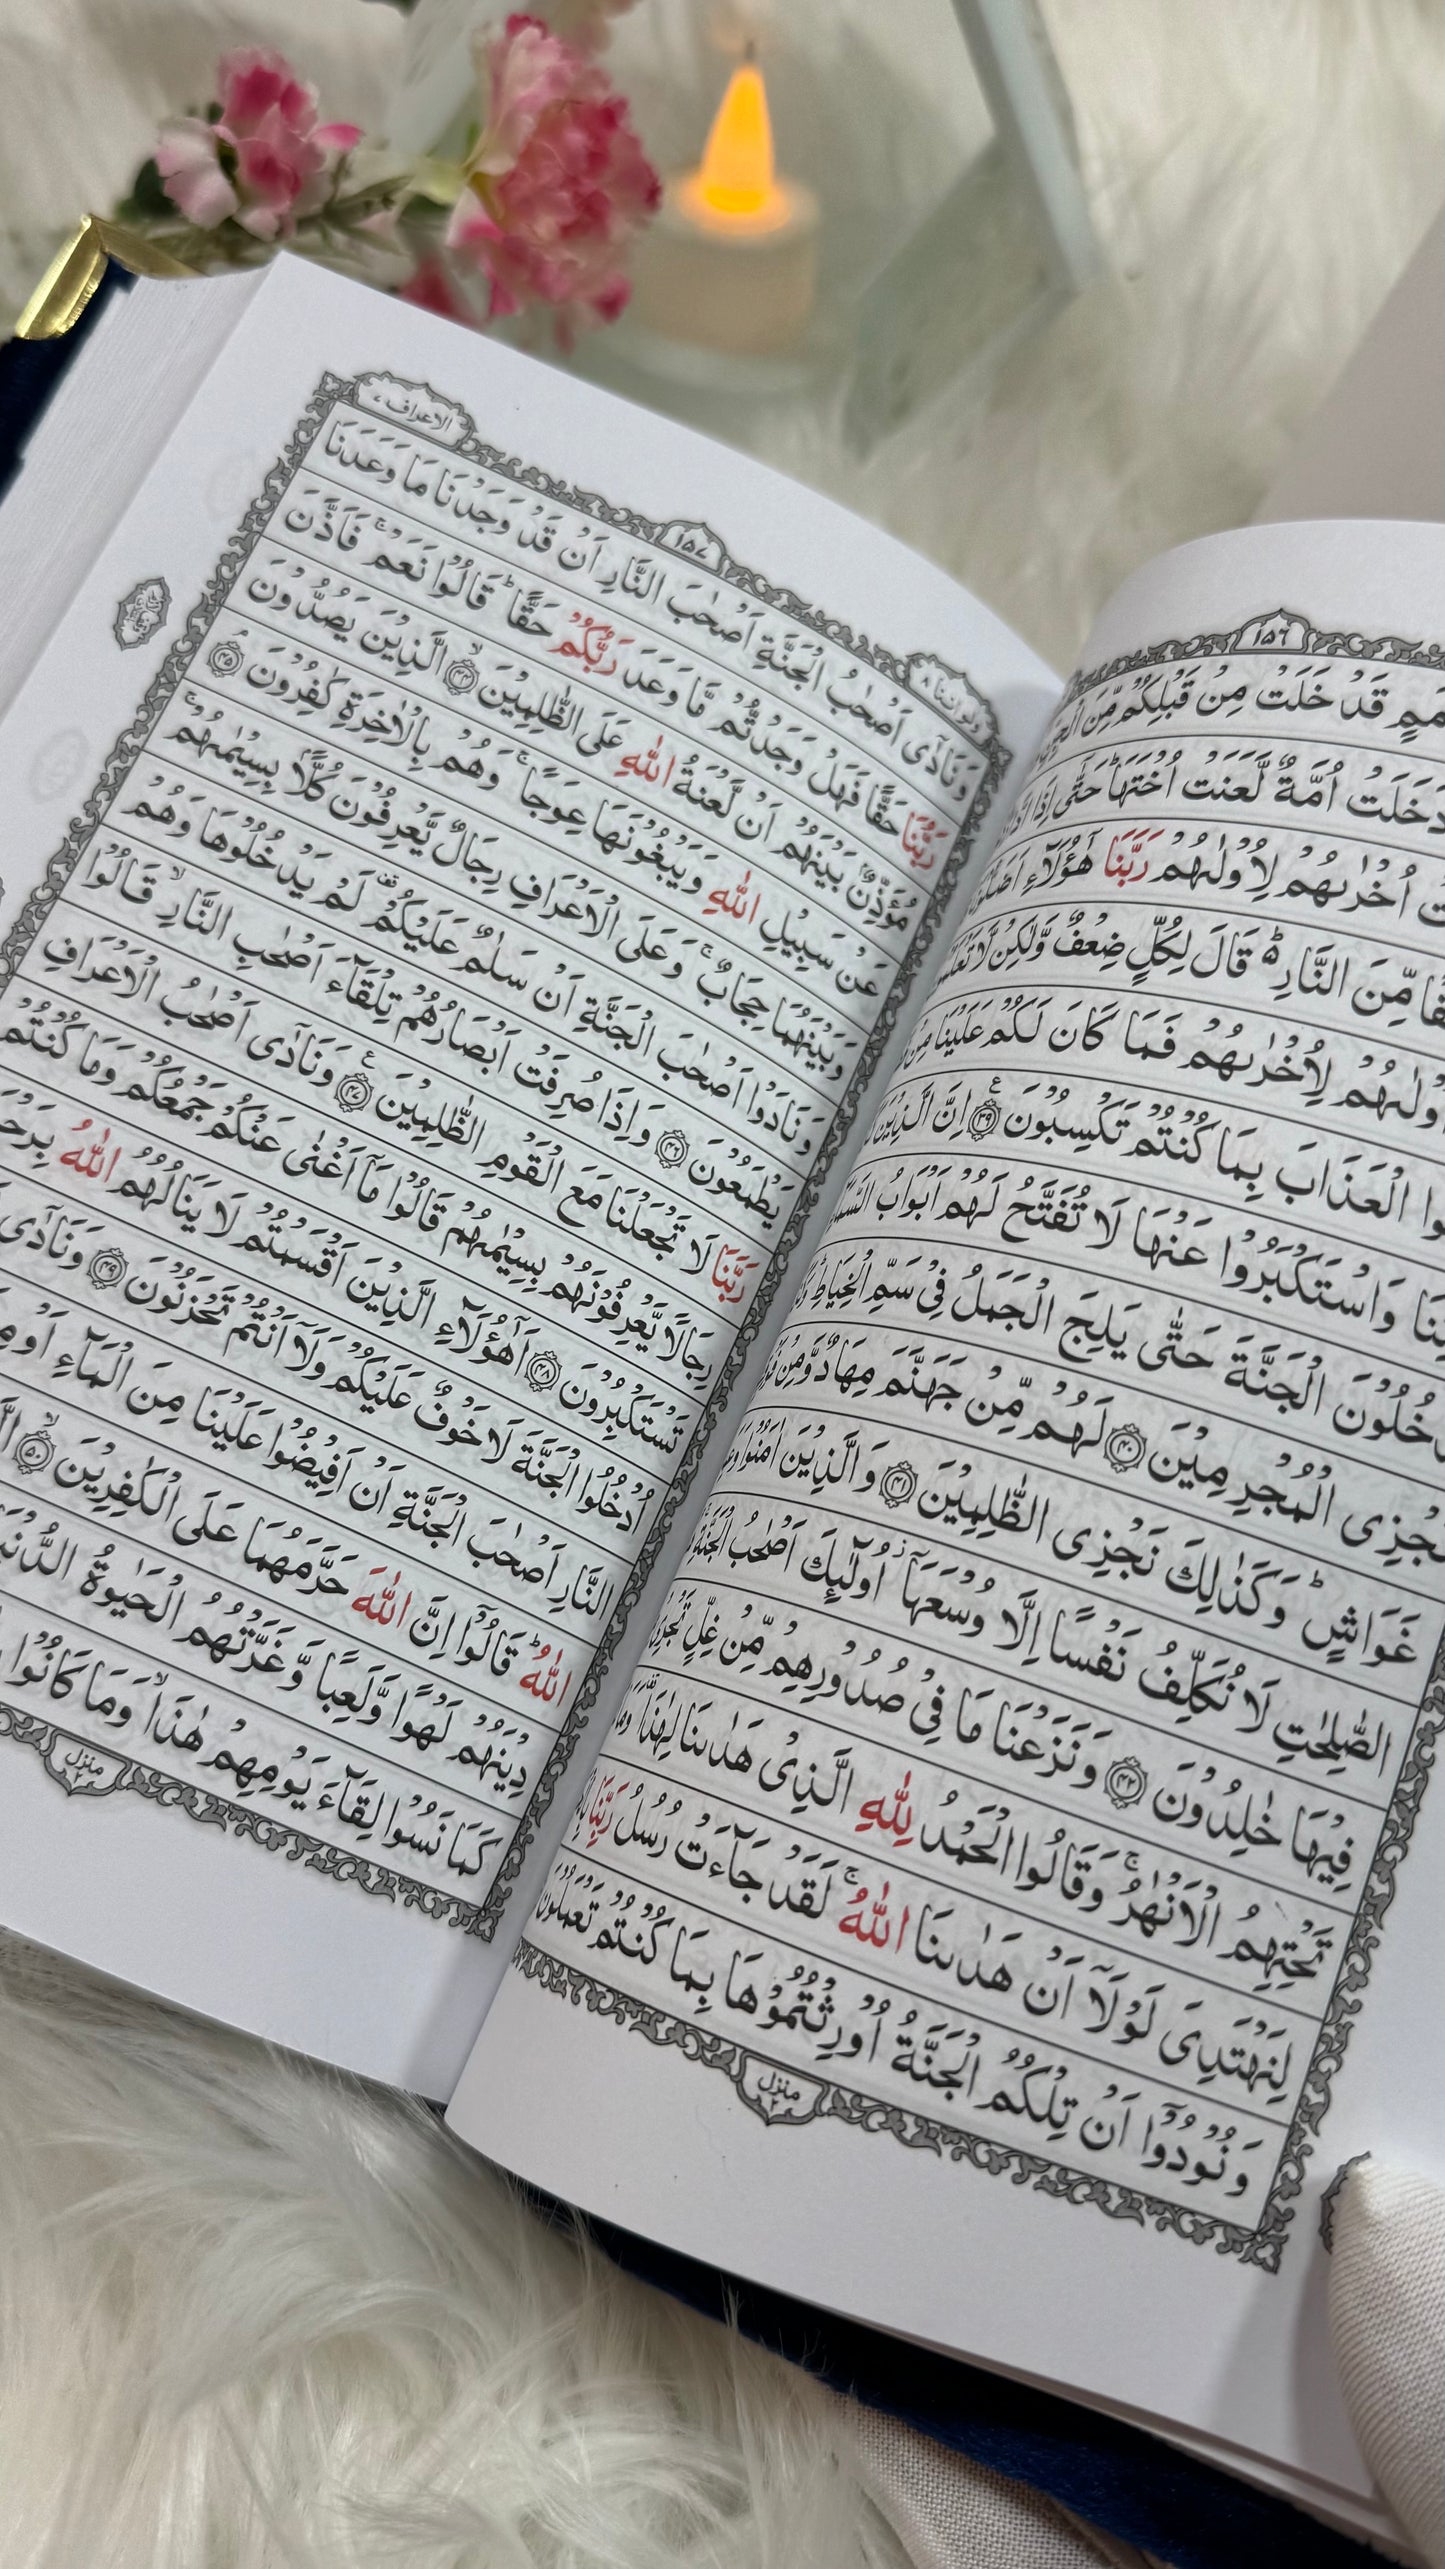 ١٥٦
اُمَمٍ قَدْ خَلَتْ مِنْ قَبْلِكُمْ مِّنَ الْجِنِّ
دَخَلَتْ اُمَّةٌ لَّعَنَتْ اُخْتَهَا ؕ حَتّٰۤى اِذَا
اُخْرٰىهُمْ لِاُوْلٰىهُمْ رَبَّنَا هٰۤؤُلَآءِ
مِّنَ النَّارِ ؕ۬ قَالَ لِكُلٍّ ضِعْفٌ وَّلٰكِنْ لَّا
اُوْلٰىهُمْ لِاُخْرٰىهُمْ فَمَا كَانَ لَكُمْ عَلَيْنَا مِنْ
الْعَذَابَ بِمَا كُنْتُمْ تَكْسِبُوْنَ ۝٣٩ اِنَّ الَّذِيْنَ
وَاسْتَكْبَرُوْا عَنْهَا لَا تُفَتَّحُ لَهُمْ اَبْوَابُ
يَدْخُلُوْنَ الْجَنَّةَ حَتّٰى يَلِجَ الْجَمَلُ فِيْ سَمِّ الْخِيَاطِ ؕ
نَجْزِى الْمُجْرِمِيْنَ ۝٤٠ لَهُمْ مِّنْ جَهَنَّمَ مِهَادٌ وَّمِنْ
غَوَاشٍ ؕ وَكَذٰلِكَ نَجْزِى الظّٰلِمِيْنَ ۝٤١ وَالَّذِيْنَ اٰمَنُوْا
الصّٰلِحٰتِ لَا نُكَلِّفُ نَفْسًا اِلَّا وُسْعَهَاۤ ؗ اُولٰٓئِكَ اَصْحٰبُ الْجَنَّةِ ۚ
فِيْهَا خٰلِدُوْنَ ۝٤٢ وَنَزَعْنَا مَا فِيْ صُدُوْرِهِمْ مِّنْ غِلٍّ تَجْرِيْ
تَحْتِهِمُ الْاَنْهٰرُ ۚ وَقَالُوا الْحَمْدُ لِلّٰهِ الَّذِيْ هَدٰىنَا لِهٰذَا ۫ وَمَا
لِنَهْتَدِيَ لَوْلَاۤ اَنْ هَدٰىنَا اللّٰهُ ۚ لَقَدْ جَآءَتْ رُسُلُ رَبِّنَا
وَنُوْدُوْۤا اَنْ تِلْكُمُ الْجَنَّةُ اُوْرِثْتُمُوْهَا بِمَا كُنْتُمْ تَعْمَلُوْنَ
منزل ٢
ولو اننا ٨
١٥٧
الاعراف ٧
وَنَادٰۤى اَصْحٰبُ الْجَنَّةِ اَصْحٰبَ النَّارِ اَنْ قَدْ وَجَدْنَا مَا وَعَدَنَا
رَبُّنَا حَقًّا فَهَلْ وَجَدْتُّمْ مَّا وَعَدَ رَبُّكُمْ حَقًّا ؕ قَالُوْا نَعَمْ ۚ فَاَذَّنَ
مُؤَذِّنٌۢ بَيْنَهُمْ اَنْ لَّعْنَةُ اللّٰهِ عَلَى الظّٰلِمِيْنَ ۝٤٤ الَّذِيْنَ يَصُدُّوْنَ
عَنْ سَبِيْلِ اللّٰهِ وَيَبْغُوْنَهَا عِوَجًا ۚ وَهُمْ بِالْاٰخِرَةِ كٰفِرُوْنَ ۝٤٥
وَبَيْنَهُمَا حِجَابٌ ۚ وَعَلَى الْاَعْرَافِ رِجَالٌ يَّعْرِفُوْنَ كُلًّاۢ بِسِيْمٰىهُمْ ۚ
وَنَادَوْا اَصْحٰبَ الْجَنَّةِ اَنْ سَلٰمٌ عَلَيْكُمْ ۫ لَمْ يَدْخُلُوْهَا وَهُمْ
يَطْمَعُوْنَ ۝٤٦ وَاِذَا صُرِفَتْ اَبْصَارُهُمْ تِلْقَآءَ اَصْحٰبِ النَّارِ ۙ قَالُوْا
رَبَّنَا لَا تَجْعَلْنَا مَعَ الْقَوْمِ الظّٰلِمِيْنَ ۝٤٧ وَنَادٰۤى اَصْحٰبُ الْاَعْرَافِ
رِجَالًا يَّعْرِفُوْنَهُمْ بِسِيْمٰىهُمْ قَالُوْا مَاۤ اَغْنٰى عَنْكُمْ جَمْعُكُمْ وَمَا كُنْتُمْ
تَسْتَكْبِرُوْنَ ۝٤٨ اَهٰۤؤُلَآءِ الَّذِيْنَ اَقْسَمْتُمْ لَا يَنَالُهُمُ اللّٰهُ
اُدْخُلُوا الْجَنَّةَ لَا خَوْفٌ عَلَيْكُمْ وَلَاۤ اَنْتُمْ تَحْزَنُوْنَ ۝٤٩ وَنَادٰۤى
النَّارِ اَصْحٰبَ الْجَنَّةِ اَنْ اَفِيْضُوْا عَلَيْنَا مِنَ الْمَآءِ اَوْ
اللّٰهُ ؕ قَالُوْۤا اِنَّ اللّٰهَ حَرَّمَهُمَا عَلَى الْكٰفِرِيْنَ ۝٥٠
دِيْنَهُمْ لَهْوًا وَّلَعِبًا وَّغَرَّتْهُمُ الْحَيٰوةُ الدُّنْيَا
كَمَا نَسُوْا لِقَآءَ يَوْمِهِمْ هٰذَا ۙ وَمَا كَانُوْا
منزل ٢